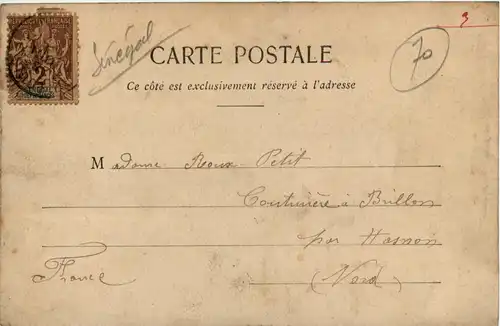 Sénégal
3
70
CARTE POSTALE
Ce côté est exclusivement réservé à l'adresse
2
Madame Roux-Petit
Couturière à Brillon
par Hasnon
France (Nord)